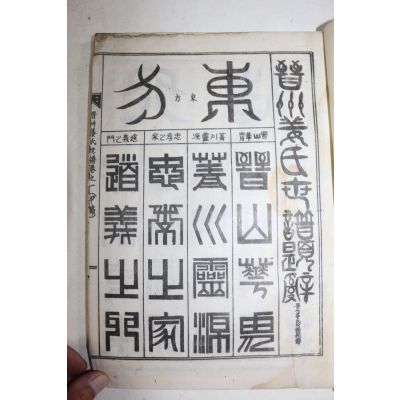 晉州姜氏世譜
東方
東方
晋山華胄
晉山華胄
菁川靈源
菁川靈源
忠孝之家
忠孝之家
道義之門
道義之門
晋州姜氏世譜卷之一